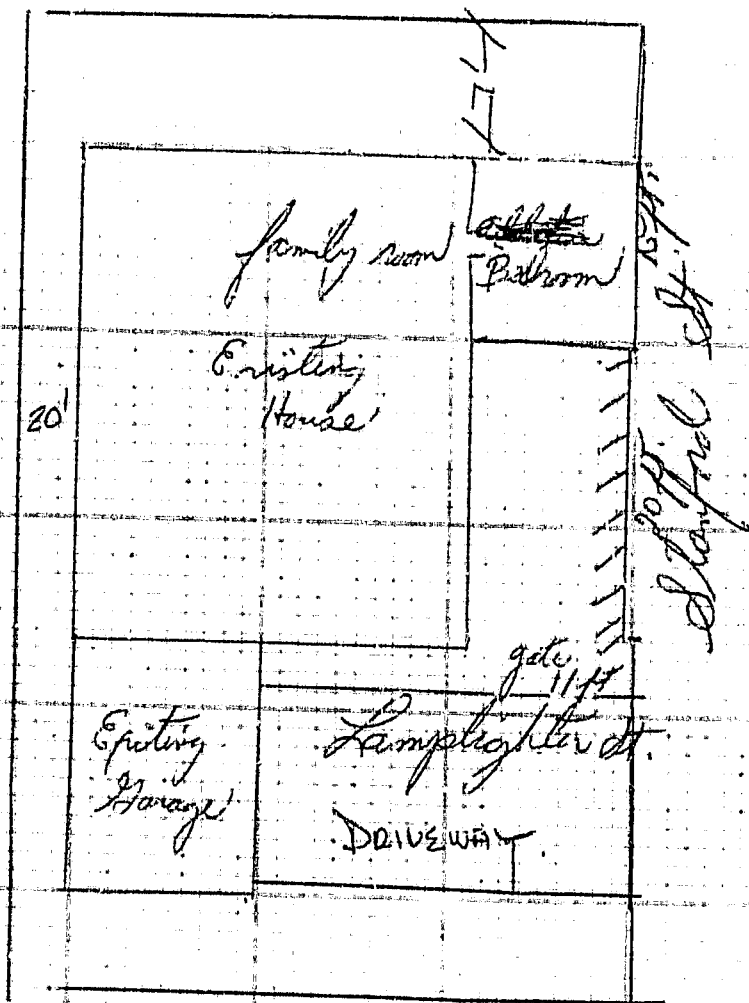 family room
Bedroom
15 ft.
Existing
House
20'
20 ft
Stanford St.
gate
11 ft
Existing
Garage
Lamplighter St.
DRIVEWAY